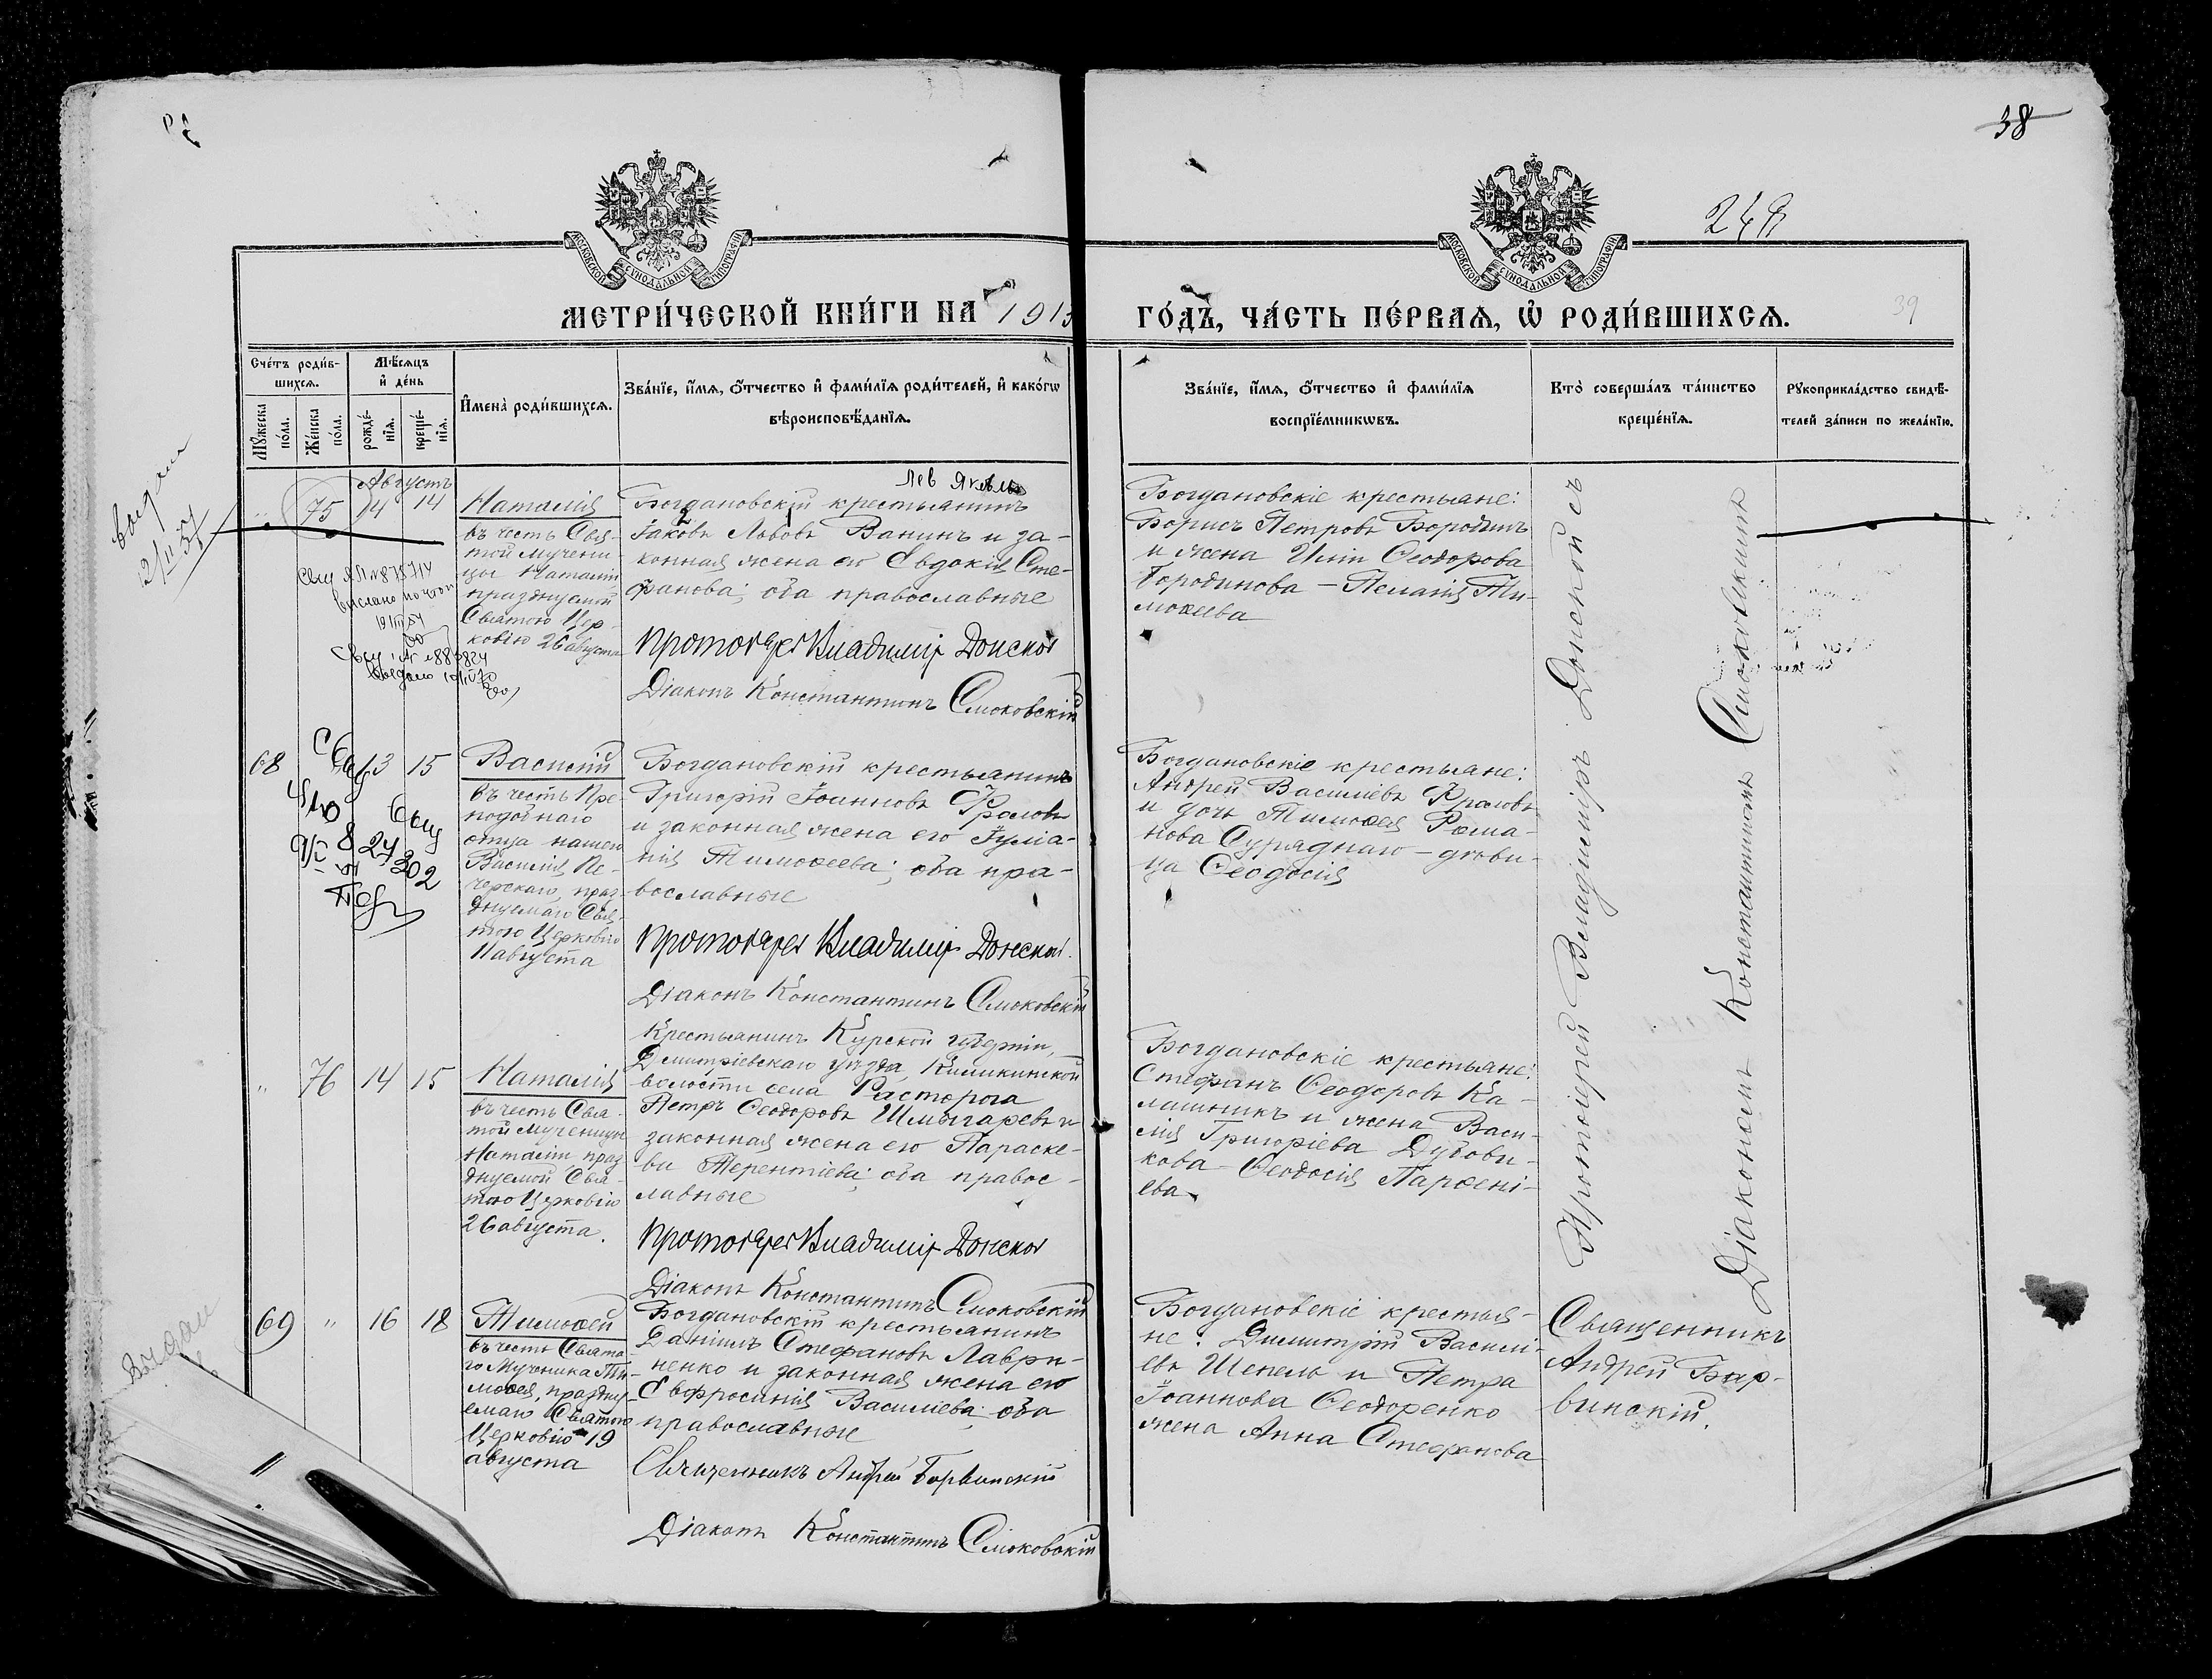 38
МОСКОВСКОЙ СУНОДАЛЬНОЙ ТИПОГРАФІИ
МОСКОВСКОЙ СУНОДАЛЬНОЙ ТИПОГРАФІИ
МЕТРИ́ЧЕСКОЙ КНИ́ГИ НА 1913
ГО́ДЪ, ЧА́СТЬ ПЕ́РВАѦ, Ѡ҆ РОДИ́ВШИХСѦ.
39
Сче́тъ роди́в-
шихсѧ.
Мѣ́сѧцъ
и҆ де́нь
Мꙋ́жеска
по́ла.
Же́нска
по́ла.
рожде́-
нїѧ.
креще́-
нїѧ.
И҆мена̀ роди́вшихсѧ.
Зва́нїе, и҆́мѧ, ѻ҆́тчество и҆ фами́лїѧ роди́телей, и҆ како́гѡ
вѣроисповѣ́данїѧ.
Зва́нїе, и҆́мѧ, ѻ҆́тчество и҆ фами́лїѧ
воспрїе́мникѡвъ.
Кто̀ соверша́лъ та́инство
креще́нїѧ.
Рꙋкоприкла́дство свидѣ́-
телей за́писи по жела́нїю.
Августъ
75 14 14
Наталія
въ честь Свя-
той мучени-
цы Наталіи
празднуемой
Святою Цер-
ковію 26 августа
Лев
Богдановскій крестьянинъ
Іаковъ Львовъ Ванинъ и за-
конная жена его Евдокія Сте-
фанова; оба православные
Протоіерей Владиміръ Донской
Діаконъ Константинъ Смоковскій
Богдановскіе крестьяне:
Борисъ Петровъ Бородинъ
и жена Иліи Ѳеодорова
Бородинова – Пелагія Ти-
моѳеева
Протоіерей Владиміръ Донской съ
Діакономъ Константиномъ Смоковскимъ
68 13 15
Василій
въ честь Пре-
подобнаго
отца нашего
Василія Пе-
черскаго, праз-
днуемаго Свя-
тою Церковію
11 августа
Богдановскій крестьянинъ
Григорій Іоанновъ Фроловъ
и законная жена его Іуліа-
нія Тимоѳеева; оба пра-
вославные
Протоіерей Владиміръ Донской.
Діаконъ Константинъ Смоковскій
Богдановскіе крестьяне:
Андрей Василіевъ Фроловъ
и дочь Тимоѳея Рома-
нова Суряднаго – дѣви-
ца Ѳеодосія
76 14 15
Наталія
въ честь Свя-
той мученицы
Наталіи праз-
днуемой Свя-
тою Церковію
26 августа.
Крестьянинъ Курской губерніи,
Дмитріевскаго уѣзда, Киликинской
волости села Расторога
Петръ Ѳеодоровъ Шмыгаревъ и
законная жена его Параске-
ва Терентіева; оба правос-
лавные
Протоіерей Владиміръ Донской
Діаконъ Константинъ Смоковскій
Богдановскіе крестьяне:
Стефанъ Ѳеодоровъ Ка-
лашникъ и жена Васи-
лія Григоріева Дубови-
кова – Ѳеодосія Парѳені-
ева
69 " 16 18
Тимоѳей
въ честь Свята-
го Мученика Ти-
моѳея, праздну-
емаго Святою
Церковію 19
августа
Богдановскій крестьянинъ
Даніилъ Стефановъ Лаври-
ненко и законная жена его
Евфросинія Василіева; оба
православные
Священникъ Андрей Барвинскій
Діаконъ Константинъ Смоковскій
Богдановскіе крестья-
не: Димитрій Василі-
евъ Шепель и Петра
Іоаннова Ѳеодоренко
жена Анна Стефанова
Священникъ
Андрей Бар-
винскій.